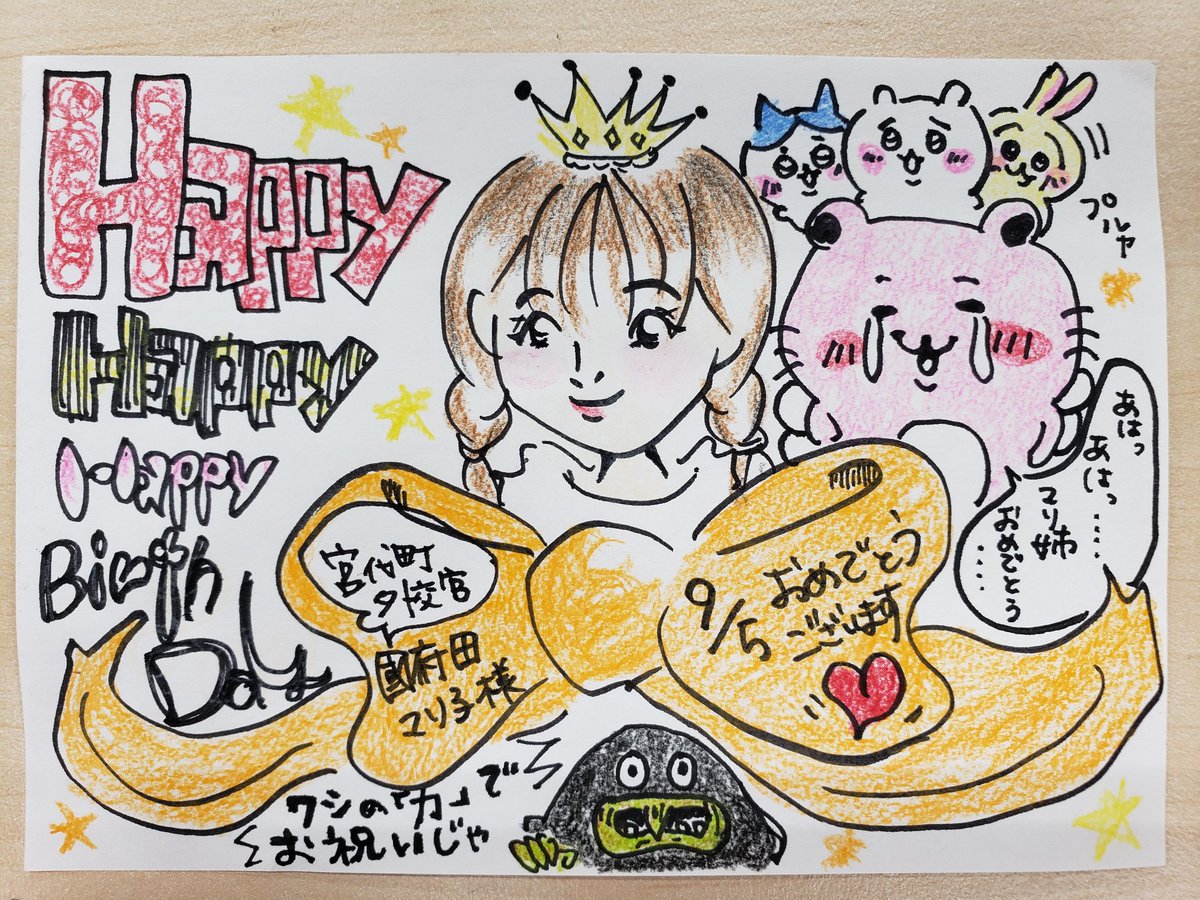 Happy
Happy
Happy
Birth
Day
プルャ
あはっ
あはっ……
マリ姉
おめでとう……
宮代町
夕校官
國府田
マリ子様
9/5
おめでとう
ございます
ワシの「力」で
お祝いじゃ